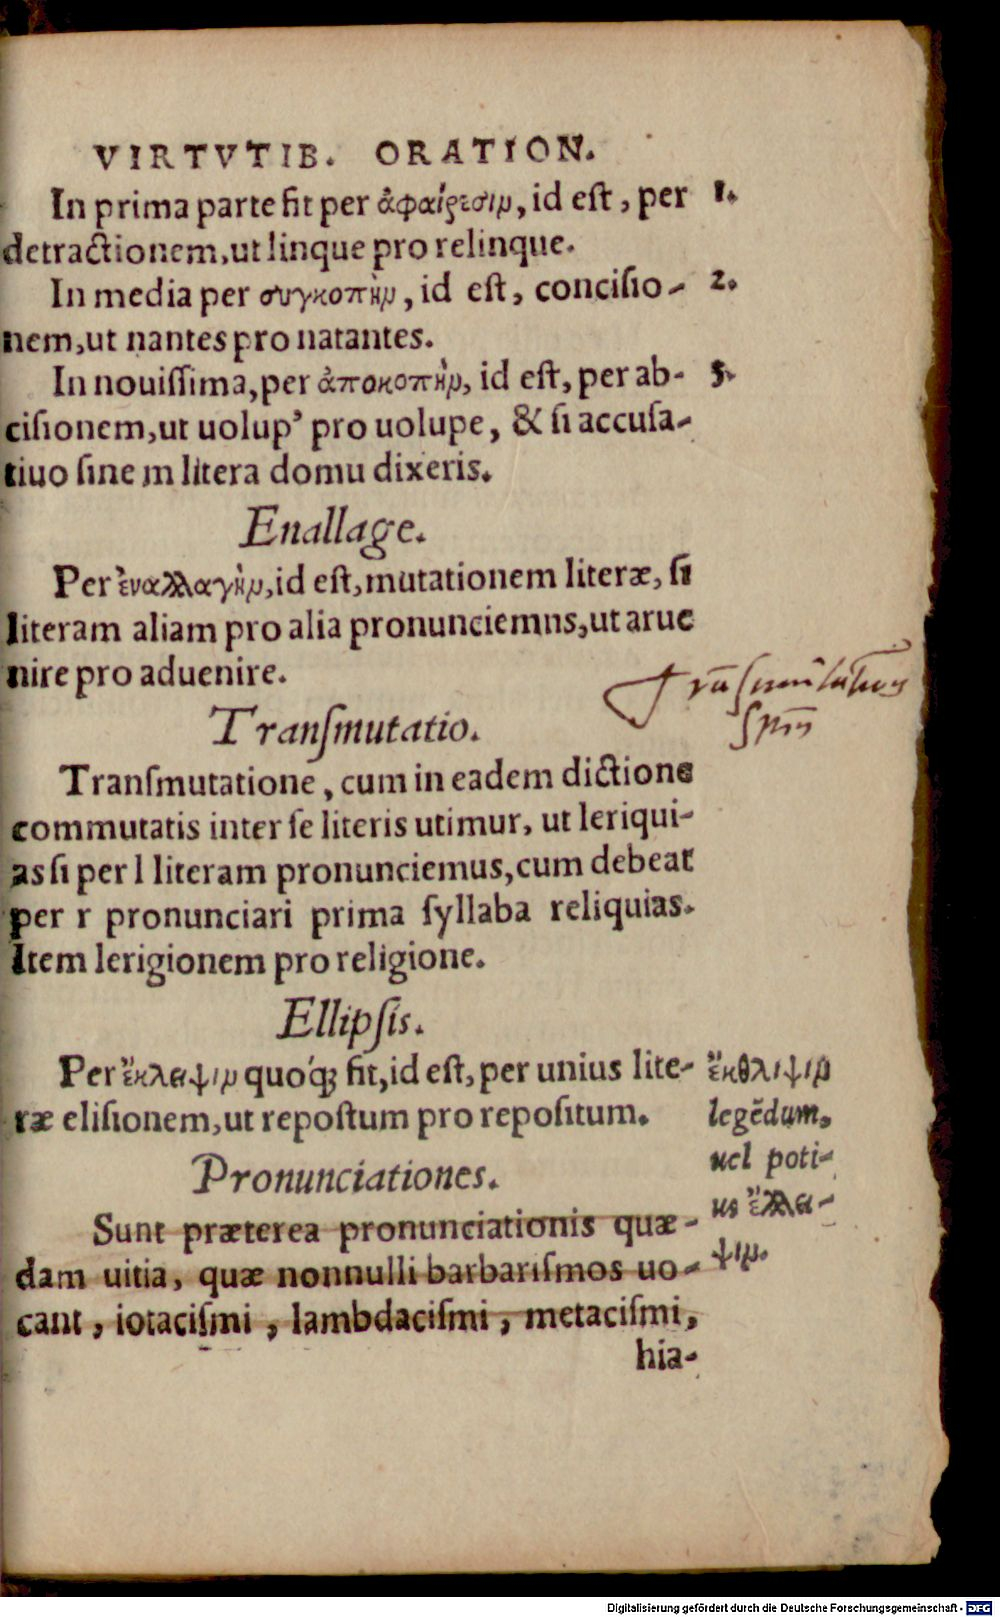 VIRTVTIB. ORATION.
In prima parte fit per ἀφαίρεσιμ, id eſt, per 1.
detractionem, ut linque pro relinque.
In media per συγκοπὴμ, id eſt, conciſio- 2.
nem, ut nantes pro natantes.
In nouiſſima, per ἀποκοπὴμ, id eſt, per ab-
ciſionem, ut uolup' pro uolupe, & ſi accuſa-
tiuo ſine m litera domu dixeris.
Enallage.
Per ἐναλλαγὴμ, id eſt, mutationem literæ, ſi
literam aliam pro alia pronunciemus, ut arue
nire pro aduenire.
Tranſmutatio.
Tranſmutatione, cum in eadem dictione
commutatis inter ſe literis utimur, ut leriqui-
as ſi per l literam pronunciemus, cum debeat
per r pronunciari prima ſyllaba reliquias.
Item lerigionem pro religione.
Ellipſis.
Per ἔκλειψιμ quoq́ꝫ fit, id eſt, per unius lite-
ræ eliſionem, ut repoſtum pro repoſitum.
ἔκθλιψιμ
legēdum,
uel poti-
us ἔλλει-
ψιμ.
Pronunciationes.
Sunt præterea pronunciationis quæ-
dam uitia, quæ nonnulli barbariſmos uo-
cant, iotaciſmi, lambdaciſmi, metaciſmi,
hia-
Digitalisierung gefördert durch die Deutsche Forschungsgemeinschaft - DFG